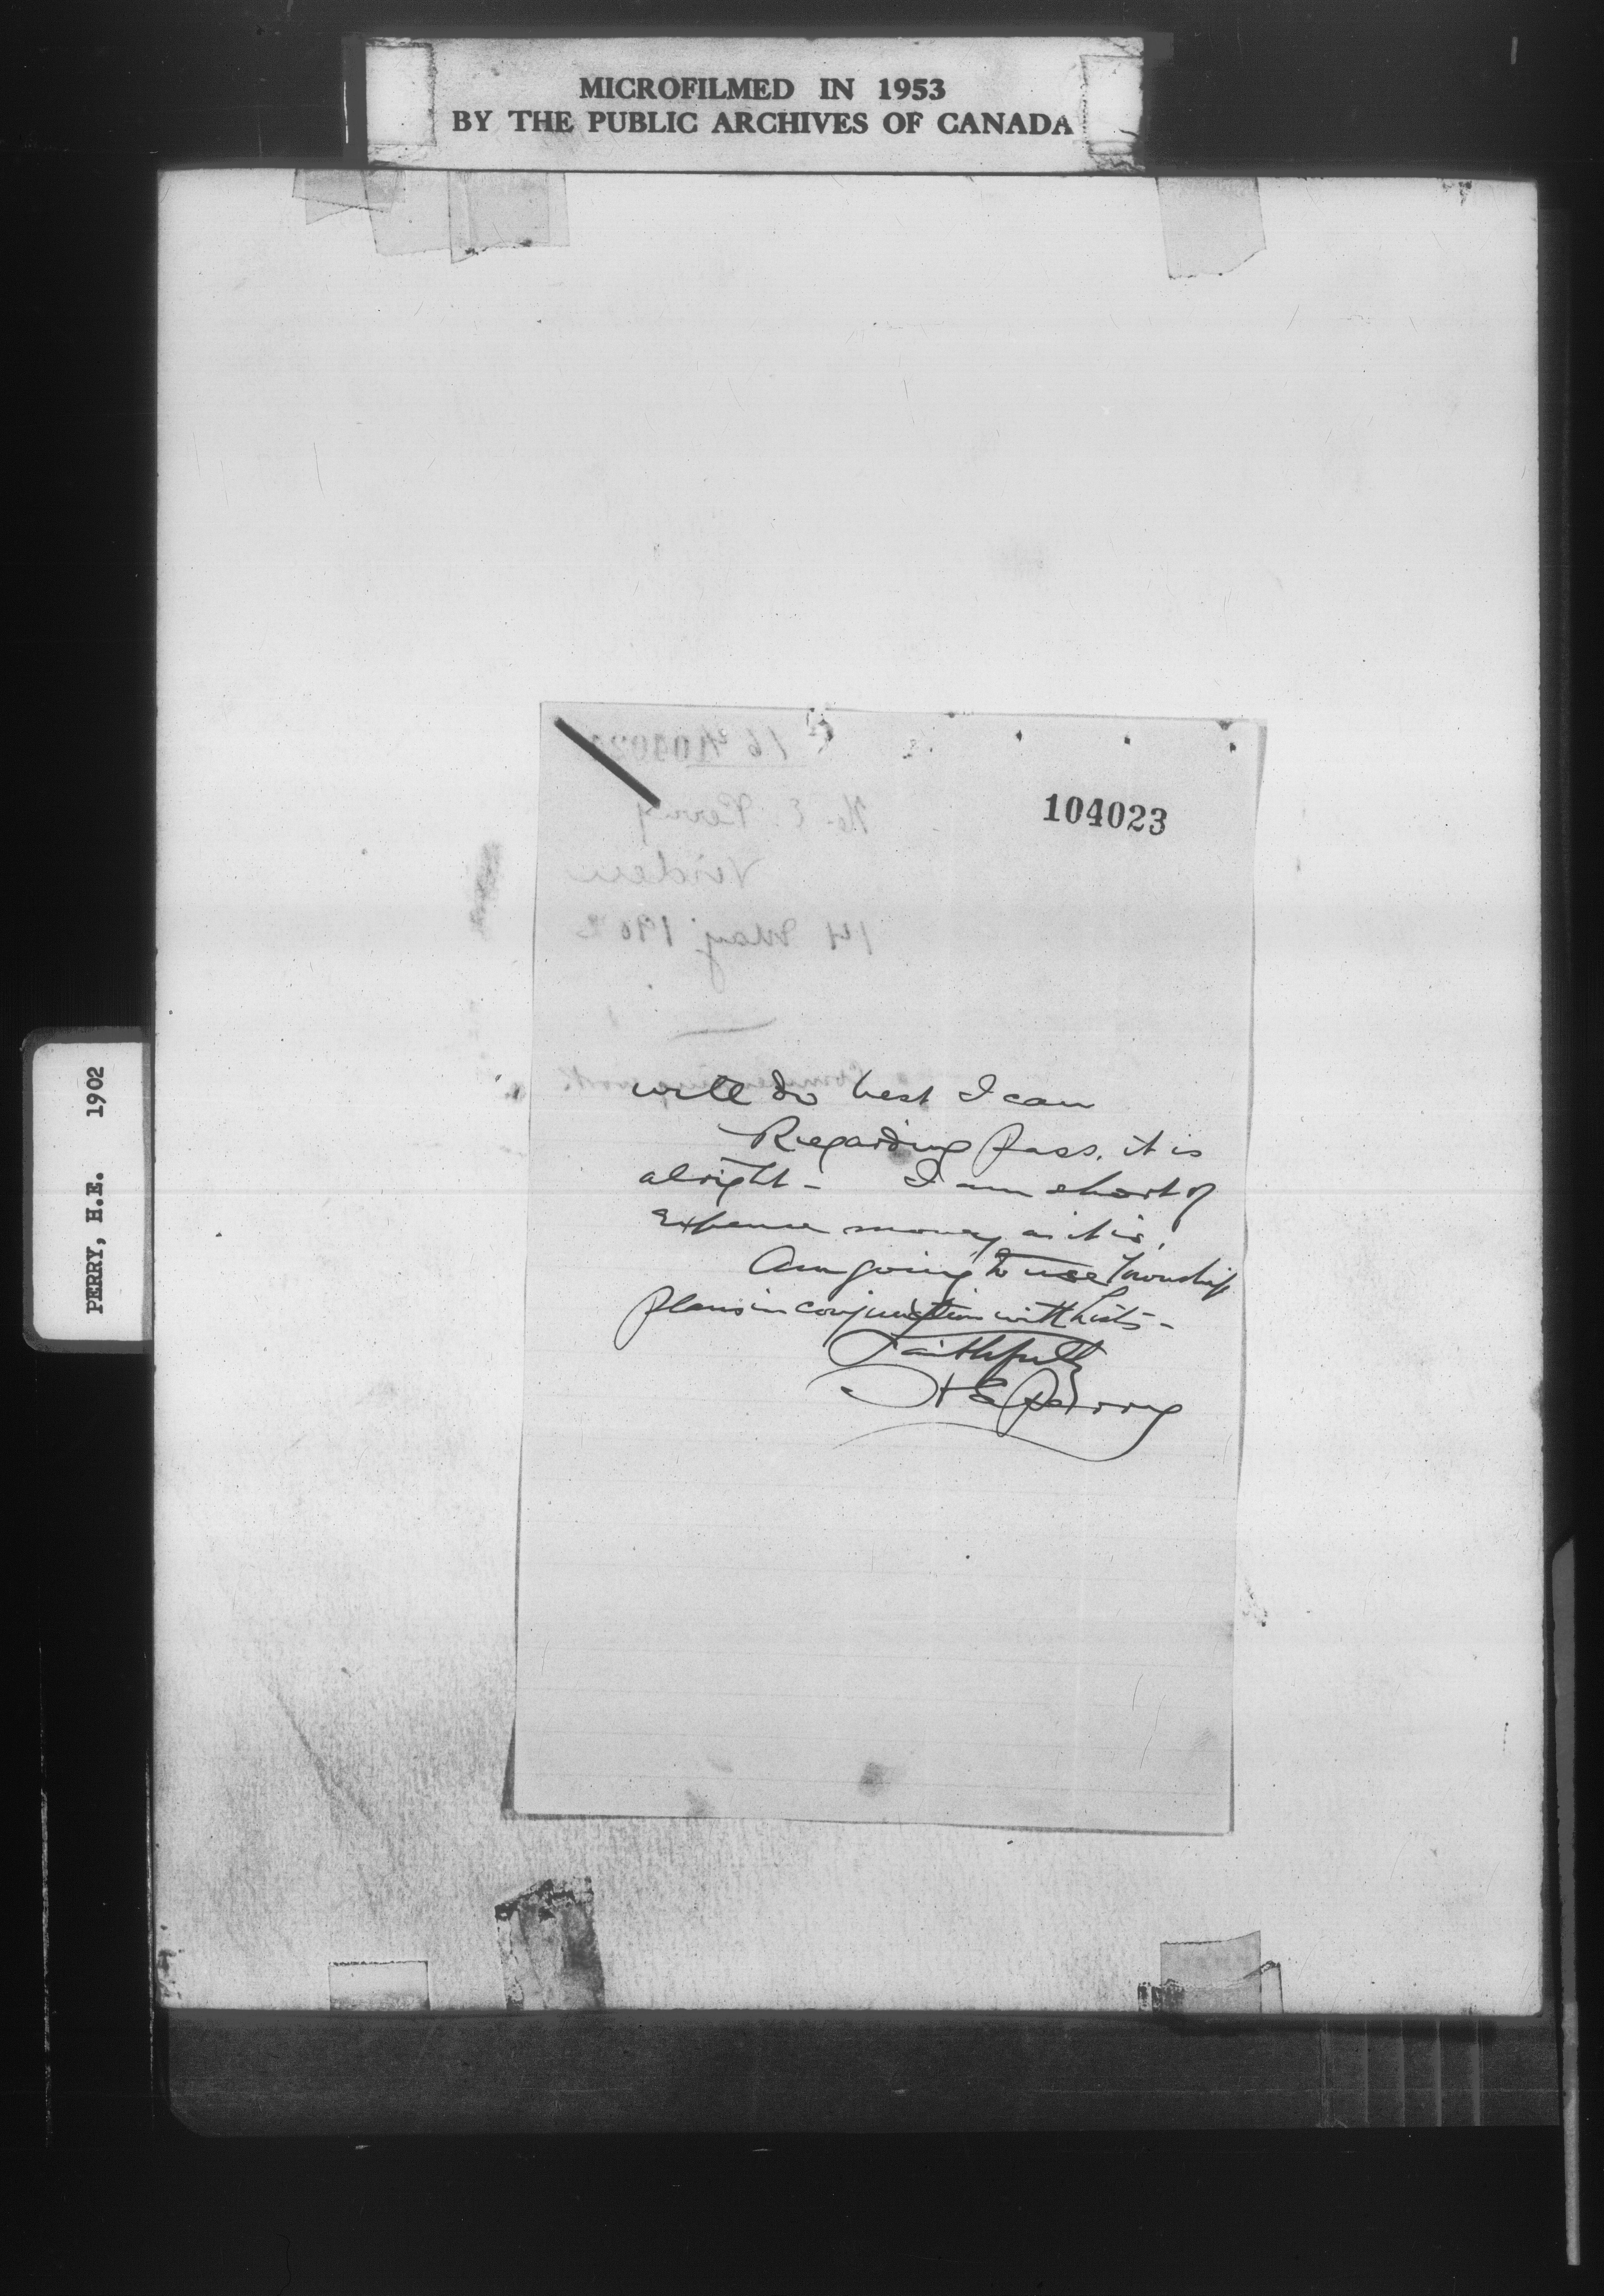 MICROFILMED IN 1953
BY THE PUBLIC ARCHIVES OF CANADA
PERRY, H.E. 1902
104023
H. E. Perry
Virden
14 May 1902
will do best I can
Regarding pass, it is
alright - I am short of
Expense money as it is,
Am going to use Township
plans in conjunction with lists -
Faithfully
H E Perry